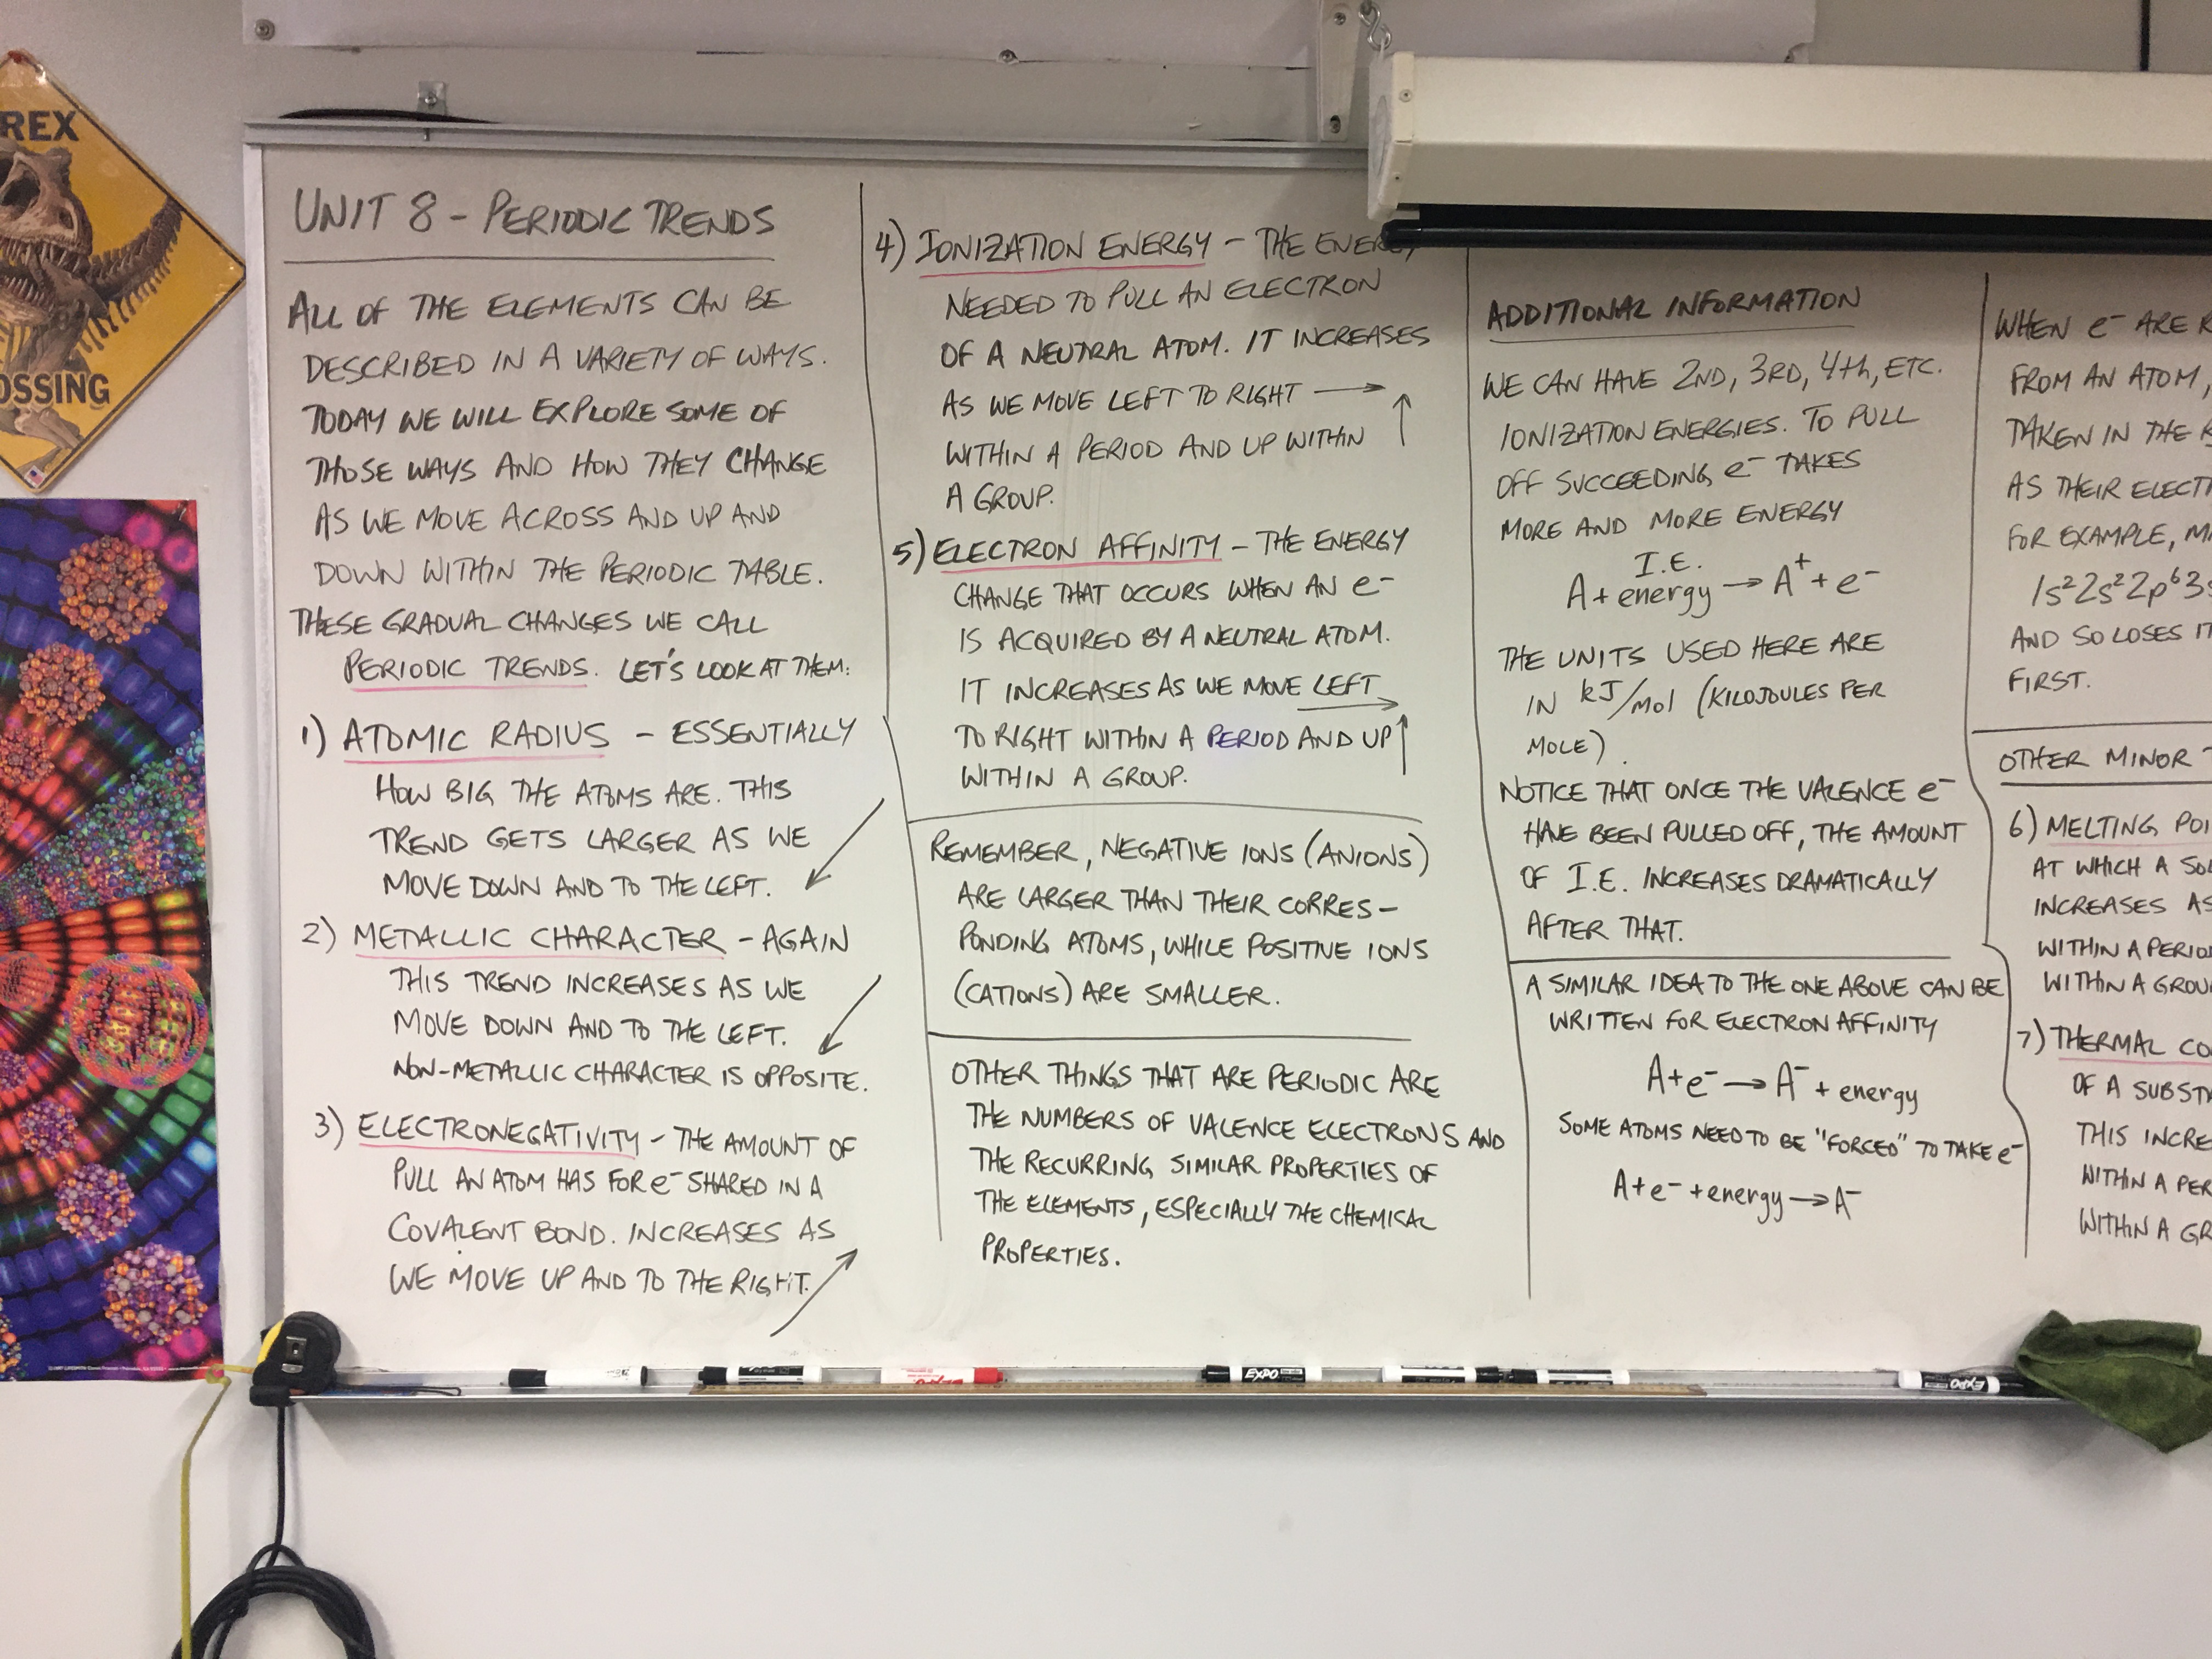 REX
OSSING
UNIT 8 - PERIODIC TRENDS
ALL OF THE ELEMENTS CAN BE
DESCRIBED IN A VARIETY OF WAYS.
TODAY WE WILL EXPLORE SOME OF
THOSE WAYS AND HOW THEY CHANGE
AS WE MOVE ACROSS AND UP AND
DOWN WITHIN THE PERIODIC TABLE.
THESE GRADUAL CHANGES WE CALL
PERIODIC TRENDS. LET'S LOOK AT THEM:
1) ATOMIC RADIUS - ESSENTIALLY
HOW BIG THE ATOMS ARE. THIS
TREND GETS LARGER AS WE
MOVE DOWN AND TO THE LEFT. ↙
2) METALLIC CHARACTER - AGAIN
THIS TREND INCREASES AS WE
MOVE DOWN AND TO THE LEFT. ↙
NON-METALLIC CHARACTER IS OPPOSITE.
3) ELECTRONEGATIVITY - THE AMOUNT OF
PULL AN ATOM HAS FOR e⁻ SHARED IN A
COVALENT BOND. INCREASES AS
WE MOVE UP AND TO THE RIGHT. ↗
4) IONIZATION ENERGY - THE ENERGY
NEEDED TO PULL AN ELECTRON
OF A NEUTRAL ATOM. IT INCREASES
AS WE MOVE LEFT TO RIGHT →
WITHIN A PERIOD AND UP WITHIN ↑
A GROUP.
5) ELECTRON AFFINITY - THE ENERGY
CHANGE THAT OCCURS WHEN AN e⁻
IS ACQUIRED BY A NEUTRAL ATOM.
IT INCREASES AS WE MOVE LEFT →
TO RIGHT WITHIN A PERIOD AND UP ↑
WITHIN A GROUP.
REMEMBER, NEGATIVE IONS (ANIONS)
ARE LARGER THAN THEIR CORRES-
PONDING ATOMS, WHILE POSITIVE IONS
(CATIONS) ARE SMALLER.
OTHER THINGS THAT ARE PERIODIC ARE
THE NUMBERS OF VALENCE ELECTRONS AND
THE RECURRING SIMILAR PROPERTIES OF
THE ELEMENTS, ESPECIALLY THE CHEMICAL
PROPERTIES.
ADDITIONAL INFORMATION
WE CAN HAVE 2ND, 3RD, 4th, ETC.
IONIZATION ENERGIES. TO PULL
OFF SUCCEEDING e⁻ TAKES
MORE AND MORE ENERGY
I.E.
A + energy → A⁺ + e⁻
THE UNITS USED HERE ARE
IN kJ/mol (KILOJOULES PER
MOLE).
NOTICE THAT ONCE THE VALENCE e⁻
HAVE BEEN PULLED OFF, THE AMOUNT
OF I.E. INCREASES DRAMATICALLY
AFTER THAT.
A SIMILAR IDEA TO THE ONE ABOVE CAN BE
WRITTEN FOR ELECTRON AFFINITY
A + e⁻ → A⁻ + energy
SOME ATOMS NEED TO BE "FORCED" TO TAKE e⁻
A + e⁻ + energy → A⁻
WHEN e⁻ ARE
FROM AN ATOM,
TAKEN IN THE
AS THEIR ELECT
FOR EXAMPLE,
1s²2s²2p⁶3s
AND SO LOSES
FIRST.
OTHER MINOR
6) MELTING POI
AT WHICH A SOL
INCREASES AS
WITHIN A PERIOD
WITHIN A GROU
7) THERMAL CO
OF A SUBSTA
THIS INCRE
WITHIN A PER
WITHIN A GR
EXPO
EXPO
EXPO